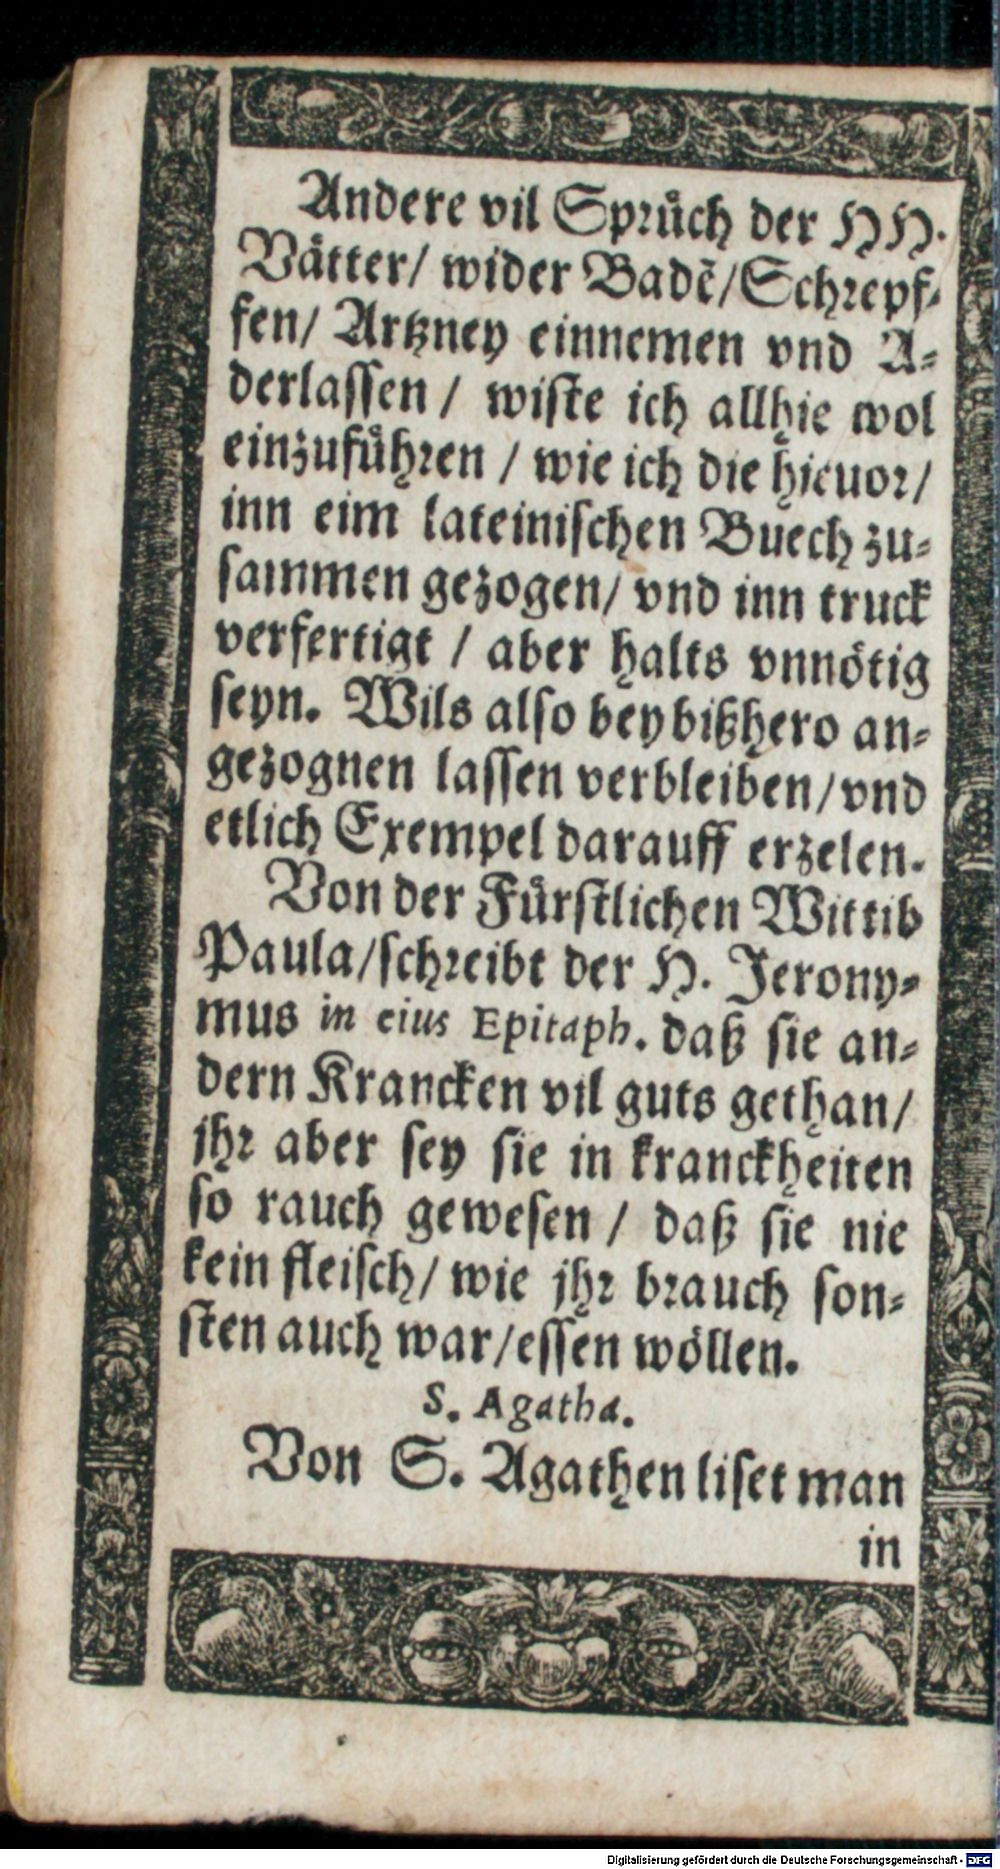 Andere vil Sprüch der HH.
Vätter/ wider Badẽ/Schrepf-
fen/ Artzney einnemen vnd A-
derlassen / wiste ich allhie wol
einzuführen / wie ich die hieuor/
inn eim lateinischen Buech zu-
sammen gezogen/ vnd inn truck
verfertigt / aber halts vnnötig
seyn. Wils also bey bißhero an-
gezognen lassen verbleiben/vnd
etlich Exempel darauff erzelen.
Von der Fürstlichen Wittib
Paula/schreibt der H. Jerony-
mus in eius Epitaph. daß sie an-
dern Krancken vil guts gethan/
jhr aber sey sie in kranckheiten
so rauch gewesen / daß sie nie
kein fleisch/ wie jhr brauch son-
sten auch war/essen wöllen.
S. Agatha.
Von S. Agathen liset man
in
Digitalisierung gefördert durch die Deutsche Forschungsgemeinschaft - DFG